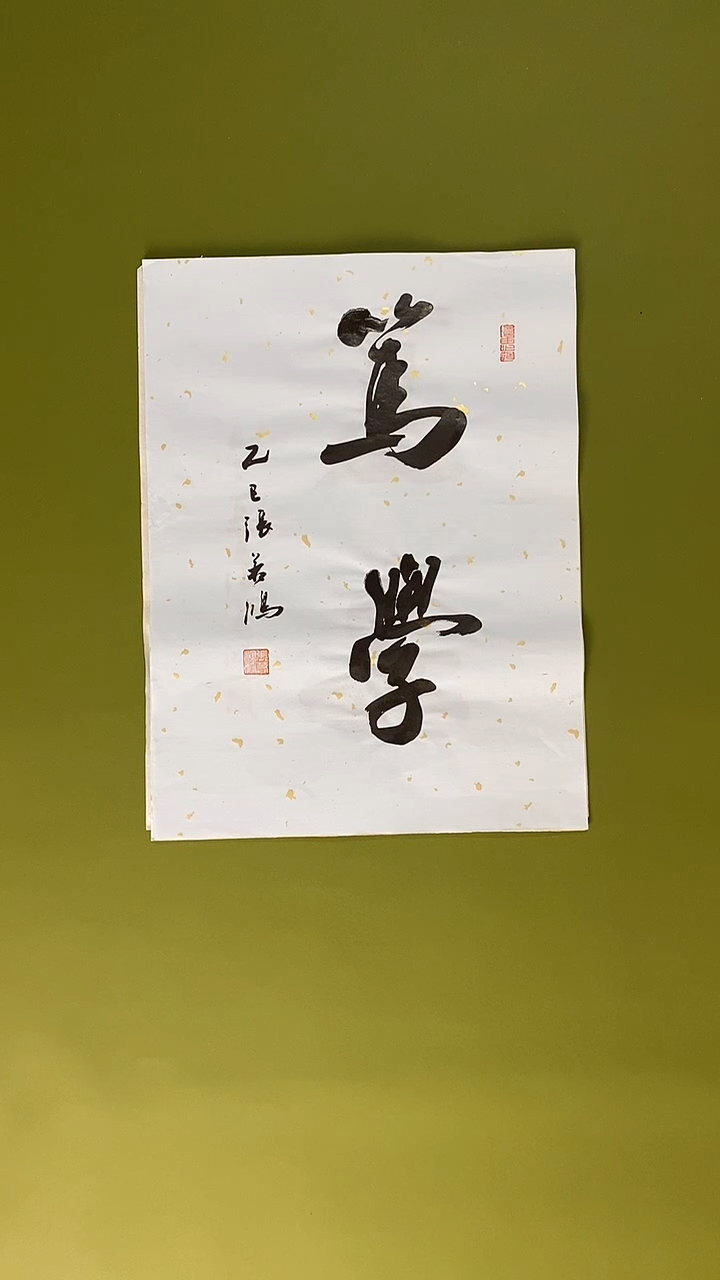 篤學
乙巳張若鴻